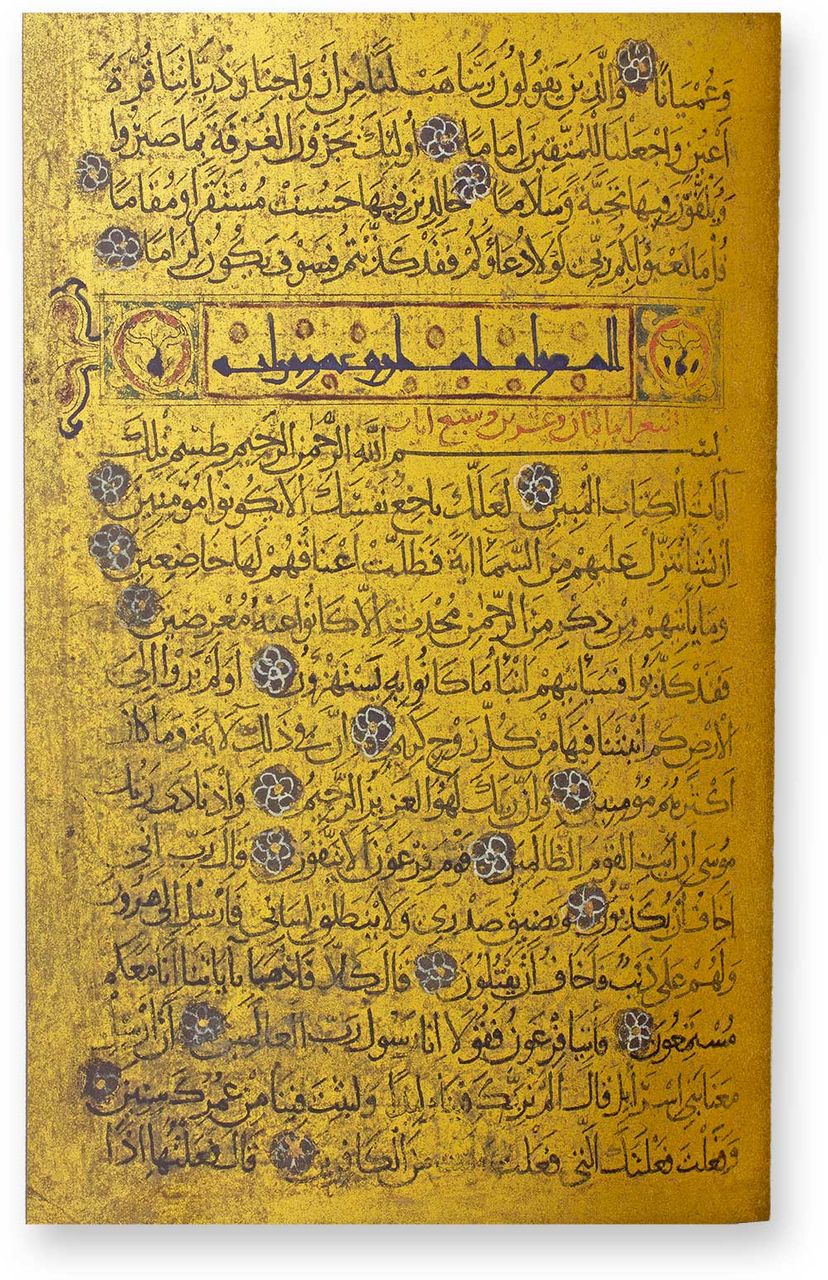 وَعُمْيَانًا وَالَّذِينَ يَقُولُونَ رَبَّنَا هَبْ لَنَا مِنْ أَزْوَاجِنَا وَذُرِّيَّاتِنَا قُرَّةَ
أَعْيُنٍ وَاجْعَلْنَا لِلْمُتَّقِينَ إِمَامًا أُولَئِكَ يُجْزَوْنَ الْغُرْفَةَ بِمَا صَبَرُوا
وَيُلَقَّوْنَ فِيهَا تَحِيَّةً وَسَلَامًا خَالِدِينَ فِيهَا حَسُنَتْ مُسْتَقَرًّا وَمُقَامًا
قُلْ مَا يَعْبَؤُا بِكُمْ رَبِّي لَوْلَا دُعَاؤُكُمْ فَقَدْ كَذَّبْتُمْ فَسَوْفَ يَكُونُ لِزَامًا
وعشرين وسبع ايات
بسم الله الرَّحْمَنِ الرَّحِيمِ طسم تِلْكَ
آيَاتُ الْكِتَابِ الْمُبِينِ لَعَلَّكَ بَاخِعٌ نَفْسَكَ أَلَّا يَكُونُوا مُؤْمِنِينَ
إِنْ نَشَأْ نُنَزِّلْ عَلَيْهِمْ مِنَ السَّمَاءِ آيَةً فَظَلَّتْ أَعْنَاقُهُمْ لَهَا خَاضِعِينَ
وَمَا يَأْتِيهِمْ مِنْ ذِكْرٍ مِنَ الرَّحْمَنِ مُحْدَثٍ إِلَّا كَانُوا عَنْهُ مُعْرِضِينَ
فَقَدْ كَذَّبُوا فَسَيَأْتِيهِمْ أَنْبَاءُ مَا كَانُوا بِهِ يَسْتَهْزِئُونَ أَوَلَمْ يَرَوْا إِلَى
الْأَرْضِ كَمْ أَنْبَتْنَا فِيهَا مِنْ كُلِّ زَوْجٍ كَرِيمٍ إِنَّ فِي ذَلِكَ لَآيَةً وَمَا كَانَ
أَكْثَرُهُمْ مُؤْمِنِينَ وَإِنَّ رَبَّكَ لَهُوَ الْعَزِيزُ الرَّحِيمُ وَإِذْ نَادَى رَبُّكَ
مُوسَى أَنِ ائْتِ الْقَوْمَ الظَّالِمِينَ قَوْمَ فِرْعَوْنَ أَلَا يَتَّقُونَ قَالَ رَبِّ إِنِّي
أَخَافُ أَنْ يُكَذِّبُونِ وَيَضِيقُ صَدْرِي وَلَا يَنْطَلِقُ لِسَانِي فَأَرْسِلْ إِلَى هَرُونَ
وَلَهُمْ عَلَيَّ ذَنْبٌ فَأَخَافُ أَنْ يَقْتُلُونِ قَالَ كَلَّا فَاذْهَبَا بِآيَاتِنَا إِنَّا مَعَكُمْ
مُسْتَمِعُونَ فَأْتِيَا فِرْعَوْنَ فَقُولَا إِنَّا رَسُولُ رَبِّ الْعَالَمِينَ أَنْ أَرْسِلْ
مَعَنَا بَنِي إِسْرَائِلَ قَالَ أَلَمْ نُرَبِّكَ فِينَا وَلِيدًا وَلَبِثْتَ فِينَا مِنْ عُمُرِكَ سِنِينَ
وَفَعَلْتَ فَعْلَتَكَ الَّتِي فَعَلْتَ وَأَنْتَ مِنَ الْكَافِرِينَ قَالَ فَعَلْتُهَا إِذًا